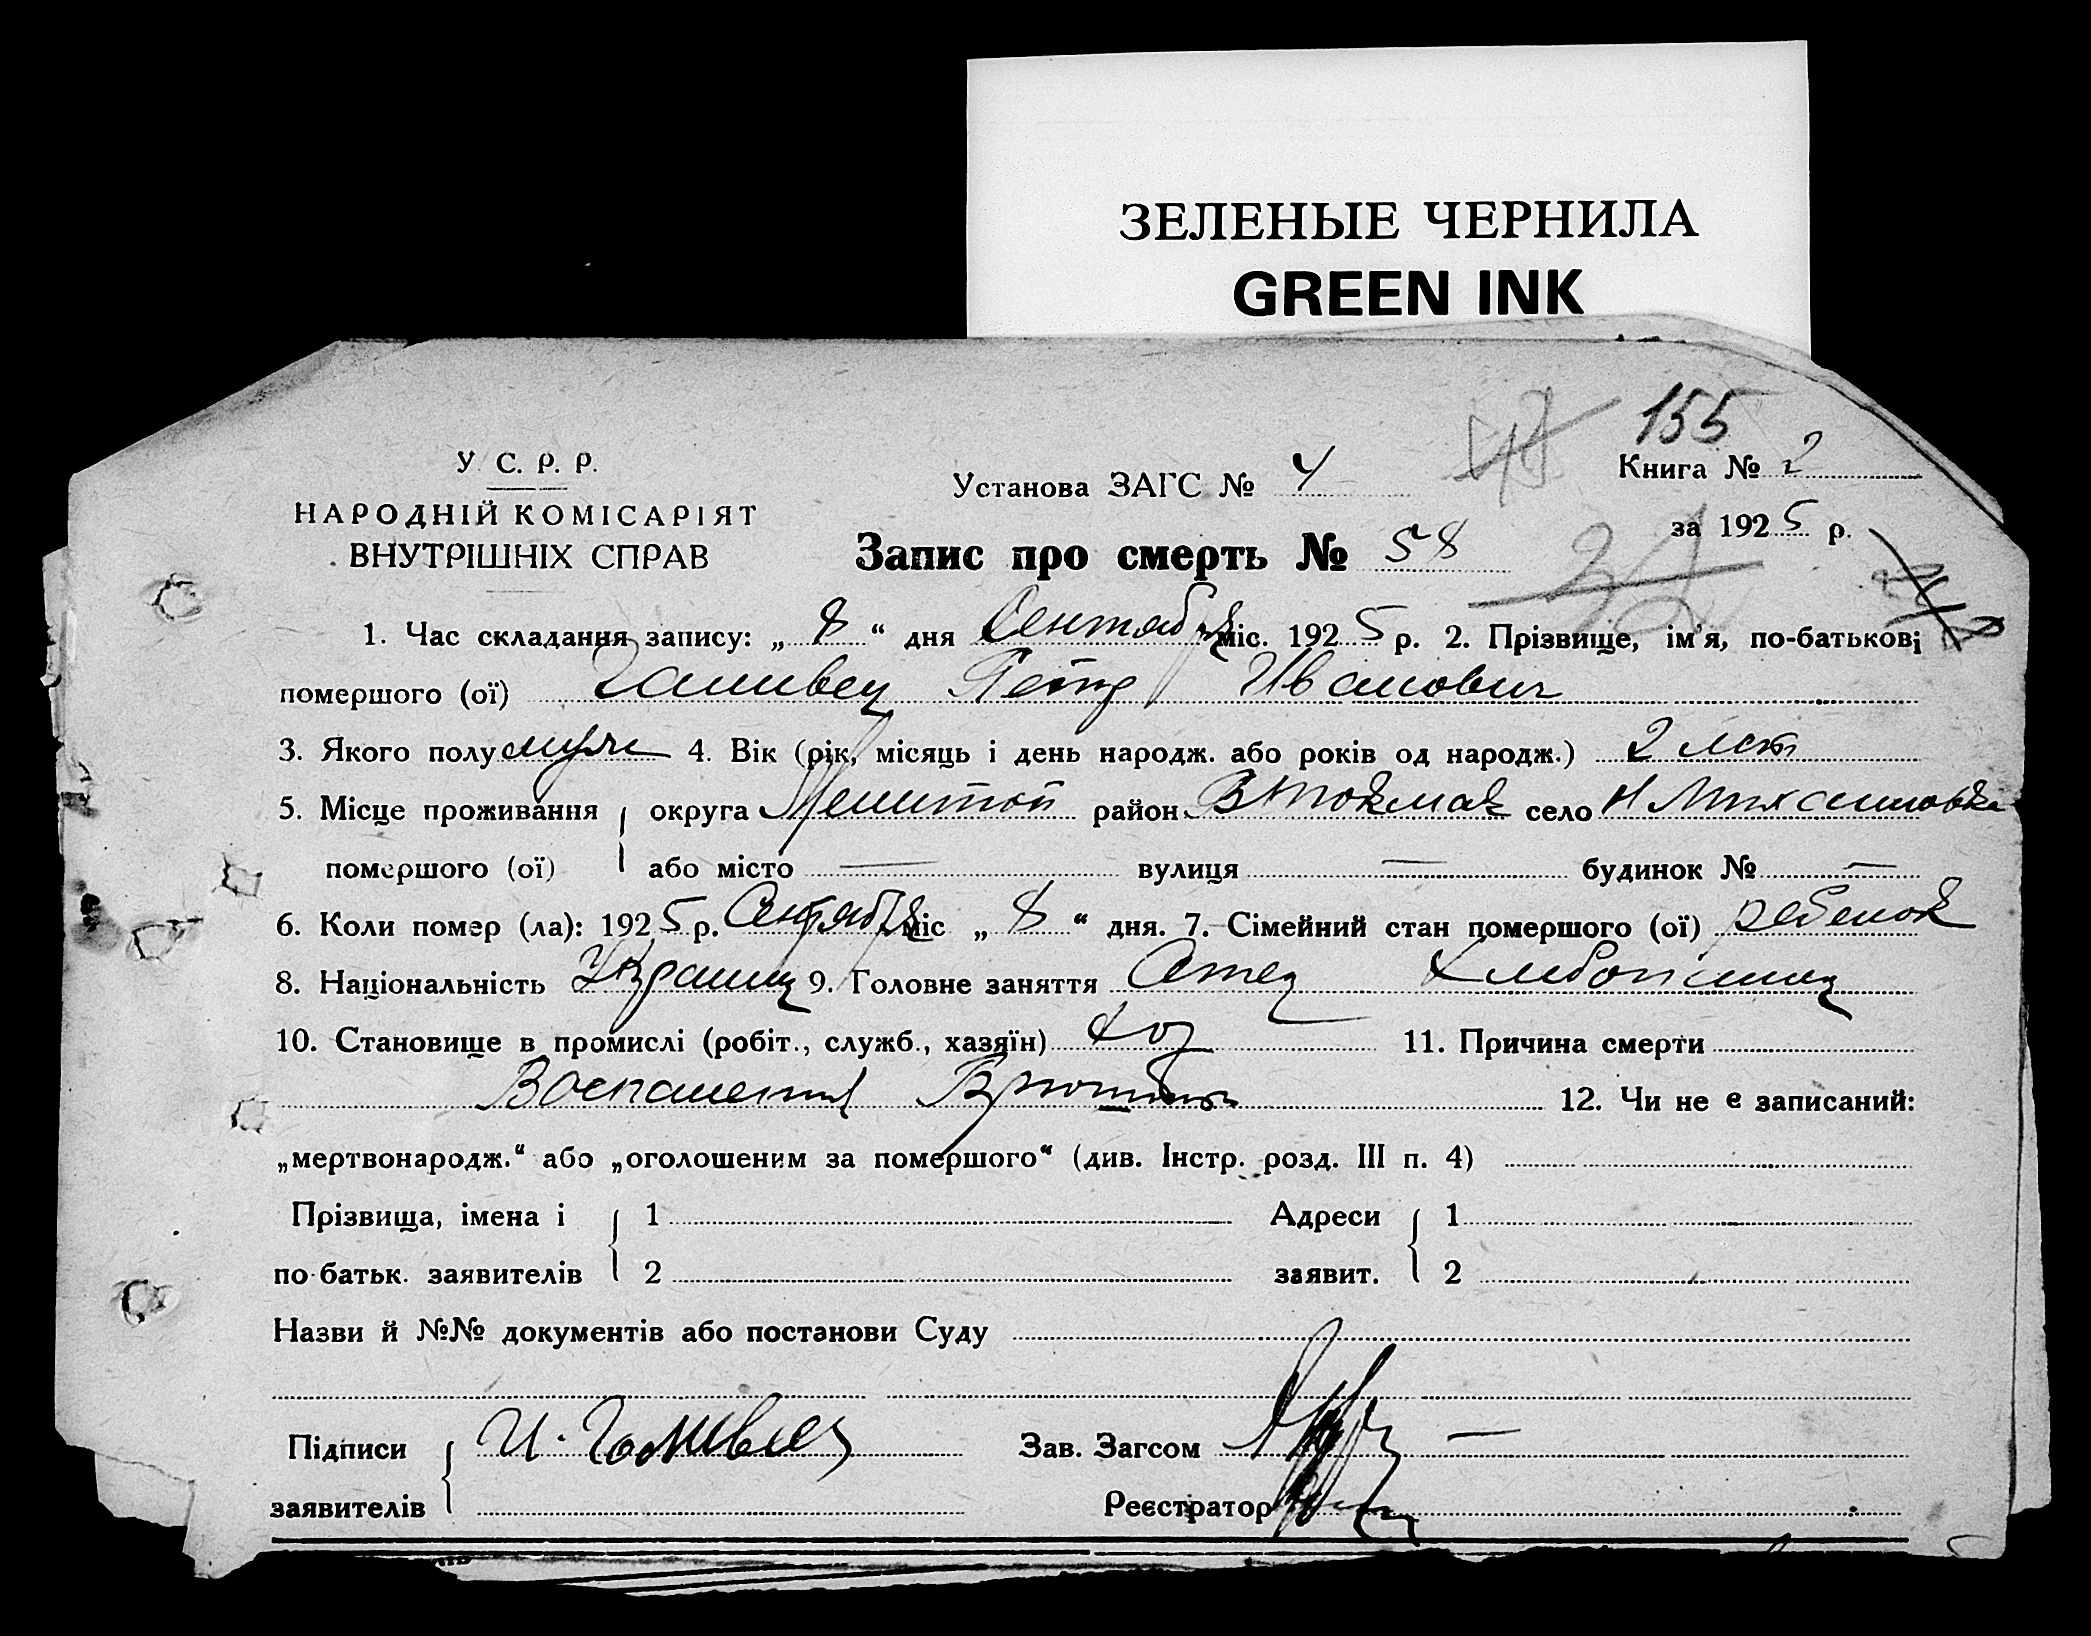 ЗЕЛЕНЫЕ ЧЕРНИЛА
GREEN INK
155
У. С. Р. Р.
НАРОДНІЙ КОМІСАРІЯТ
ВНУТРІШНІХ СПРАВ
Установа ЗАГС № 4
Книга № 2
за 1925 р.
Запис про смерть № 58
1. Час складання запису: „ 8 “ дня Сентября міс. 1925 р. 2. Прізвище, ім'я, по-батькові
помершого (ої) Петр Иванович
3. Якого полу муж 4. Вік (рік, місяць і день народж. або років од народж.) 2 лет
5. Місце проживання округа Мелитоп район ВТокмак село Н Михайловка
помершого (ої) або місто — вулиця — будинок № —
6. Коли помер (ла): 1925 р. Сентября міс „ 8 “ дня. 7. Сімейний стан помершого (ої) ребенок
8. Національність Украинц 9. Головне заняття Отец
10. Становище в промислі (робіт., служб., хазяїн) хоз 11. Причина смерти
Воспаление 12. Чи не є записаний:
„мертвонародж.“ або „оголошеним за помершого“ (див. Інстр. розд. III п. 4)
Прізвища, імена і 1 Адреси 1
по-батьк. заявителів 2 заявит. 2
Назви й №№ документів або постанови Суду
Підписи И. Зав. Загсом
заявителів Реєстратор